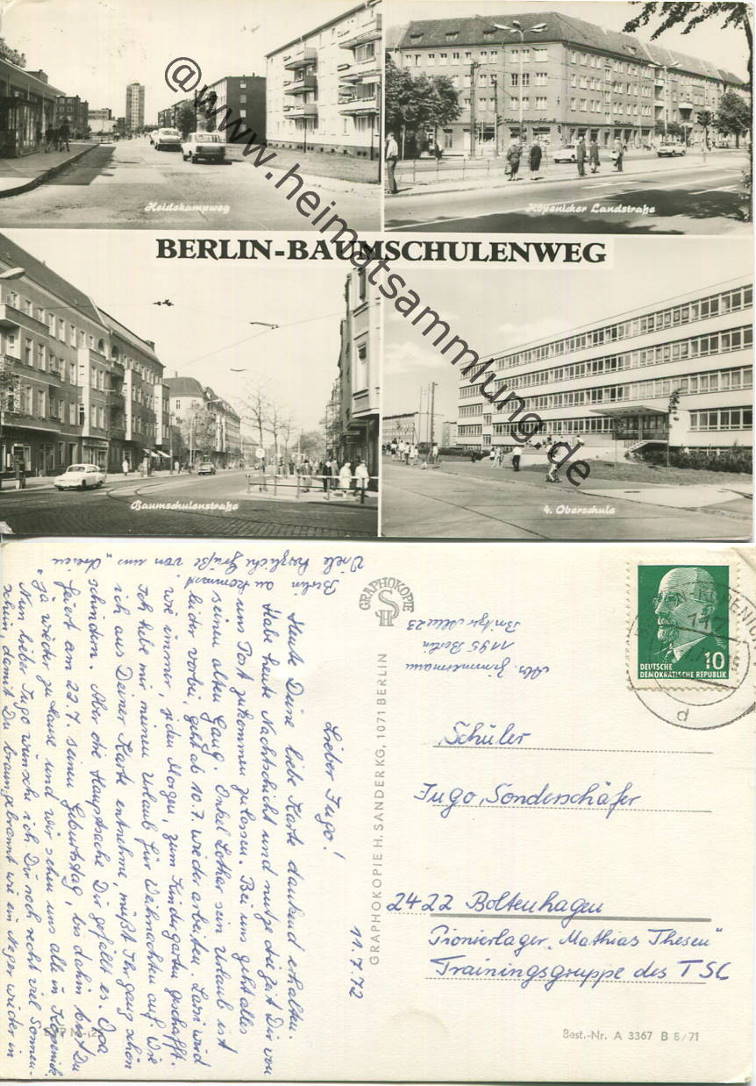 Heidekampweg
Köpenicker Landstraße
BERLIN-BAUMSCHULENWEG
Baumschulenstraße
4. Oberschule
@www.heimatsammlung.de
11.7.72
Lieber Ingo!
Heute Deine liebe Karte dankend erhalten.
Habe heute Nachtschicht und nutze die Zeit Dir von
uns Post zukommen zu lassen. Bei uns geht alles
seinen alten Gang. Onkel Lothar sein Urlaub ist
leider vorbei, geht ab 10.7. wieder arbeiten. Lari wird
wie immer, jeden Morgen, zum Kindergarten geschafft.
Ich hebe mir meinen Urlaub für Weihnachten auf. Wie
ich aus Deiner Karte entnehme, müßt Ihr ganz schön
schindern. Aber die Hauptsache Dir gefällt es. Opa
feiert am 23.7. seinen Geburtstag, bis dahin bist Du
ja wieder zu Hause und wir sehen uns alle in Köpenick.
Nun lieber Ingo wünsche ich Dir noch recht viel Sonnen-
schein, damit Du braungebrannt wie ein Neger wieder in
Berlin ankommst.
Viele herzliche Grüße von uns
GRAPHOKOPIE
SH
GRAPHOKOPIE H. SANDER KG, 1071 BERLIN
Abs. Zimmermann
1195 Berlin
Britzer Allee 23
10
DEUTSCHE
DEMOKRATISCHE REPUBLIK
117
d
Schüler
Ingo, Sonderschäfer
2422 Boltenhagen
Pionierlager „Mathias Thesen"
Trainingsgruppe des TSC
Best.-Nr. A 3367 B 8/71